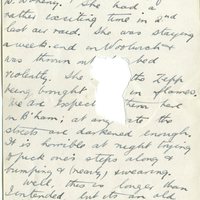 She had a
rather exciting time in 2nd
last air raid. She was staying
a week-end in Woolwich &
was thrown bed
violently. She the Zepp
being brought in flames.
We are expect them here
in B'ham; at any rate the
streets are darkened enough.
It is horrible at night trying
to pick one's steps along &
bumping & nearly swearing.
Well, this is longer than
I intended but its an old